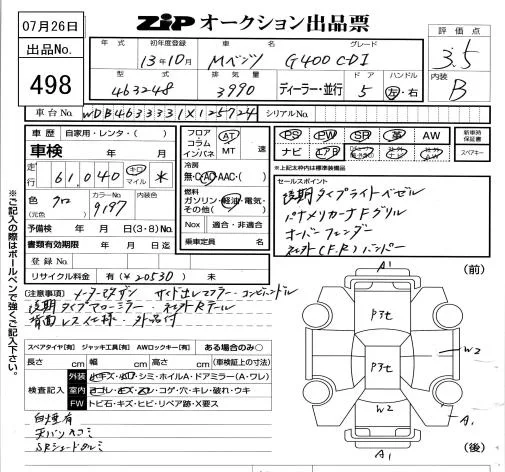 07月26日
出品No.
498
ZIP オークション出品票
評価点
3.5
内装
B
年式 初年度登録 車名 グレード
13年10月 Mベンツ G400CDI
型式 排気量 ディーラー・並行 ドア ハンドル
463248 3990 5 左・右
車台No. WDB4633331X125724 シリアルNo.
車歴 自家用・レンタ・( )
車検 年 月
走行 61,040 キロ マイル
色 クロ カラーNo. 9197 内装色
(元色)
予備検 年 月 (3・8)No.
書類有効期限 年 月 日迄
登録No.
リサイクル料金 有(¥20530) 未
フロア コラム インパネ AT MT 速
冷房
無・C・AC・AAC・( )
燃料
ガソリン・軽油・電気・その他( )
Nox 適合・非適合
乗車定員 名
PS PW SR 革 AW
ナビ エアB
新車時保証書
スペアキー
※上記太枠内は標準装備品
セールスポイント
後期タイプライトベゼル
パナメリカーナFグリル
オーバーフェンダー
(F,R)バンパー
※ご記入の際はボールペンで強くご記入下さい。
(注意事項)
後期タイプ
背面レス仕様・
スペアタイヤ[有] ジャッキ工具[有] AWロックキー[有] ある場合のみ○
長さ cm 幅 cm 高さ cm (車検証上の寸法)
検査記入
外装 キズ・シミ・ホイルA・ドアミラー(A・ワレ)
室内 ヨゴレ・コゲ・穴・キレ・破れ・ウキ
FW トビ石・キズ・ヒビ・リペア跡・X要ス
白煙有
SRシェード
(前)
A1
P3セ
P3セ
W2
W2
A1
A1
(後)